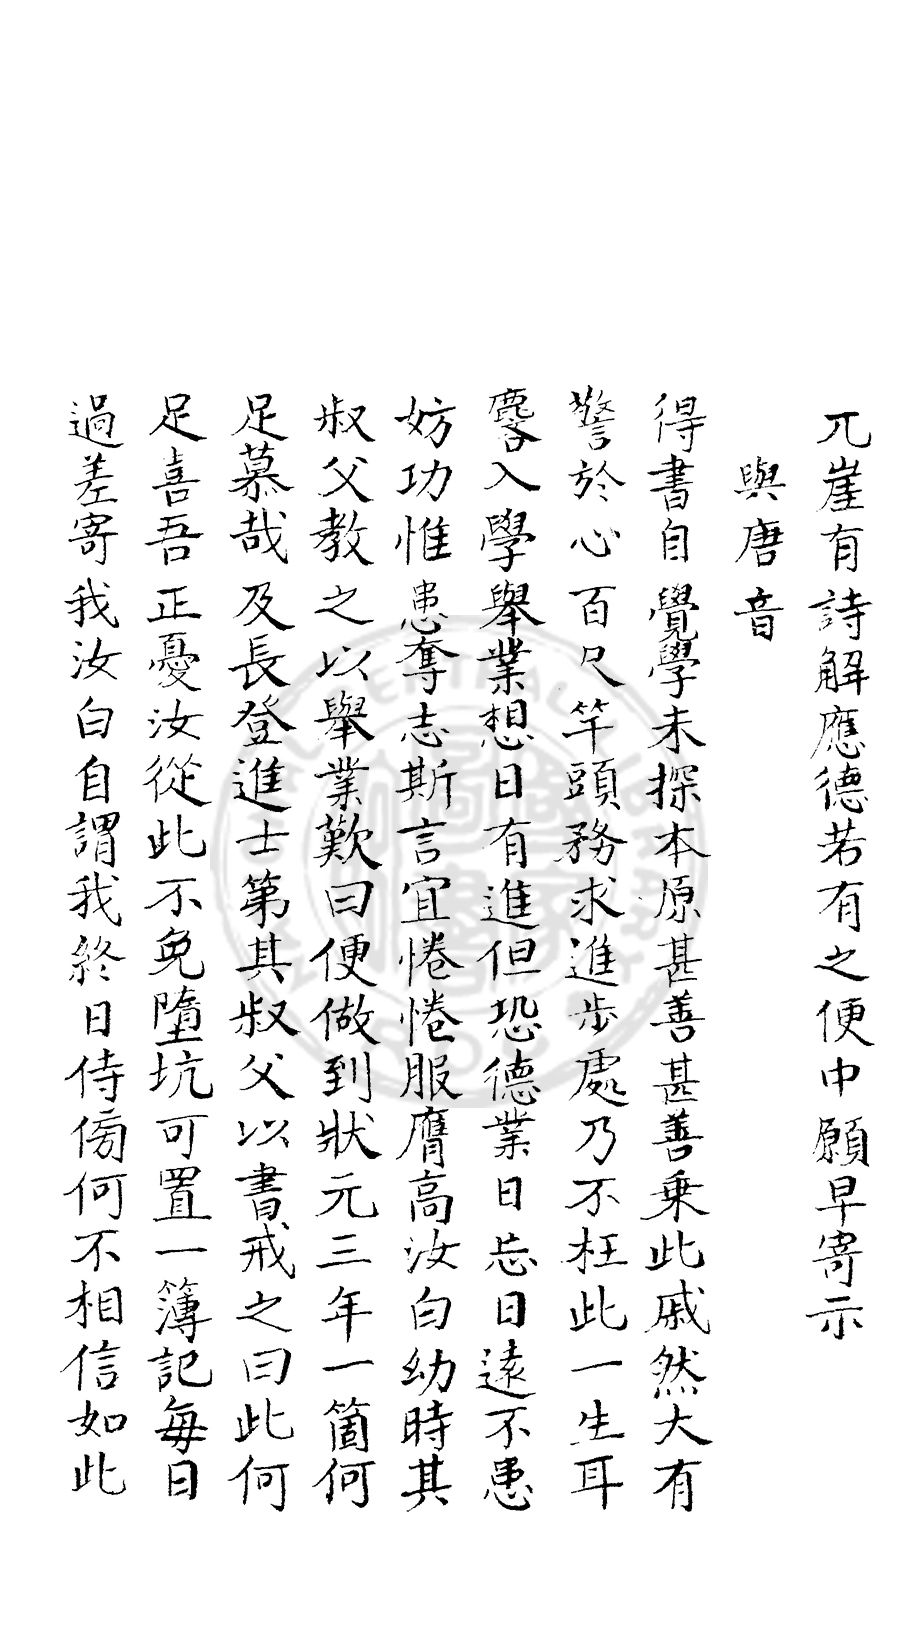 兀崖有詩解應德若有之便中願早寄示
與唐音
得書自覺學未探本原甚善甚善乗此戚然大有
警於心百尺竿頭務求進步處乃不枉此一生耳
麐入學舉業想日有進但恐德業日忘日遠不患
妨功惟患奪志斯言宜惓惓服膺高汝白幼時其
叔父教之以舉業歎曰便做到狀元三年一箇何
足慕哉及長登進士第其叔父以書戒之曰此何
足喜吾正憂汝從此不免墮坑可置一簿記每日
過差寄我汝白自謂我終日侍傍何不相信如此